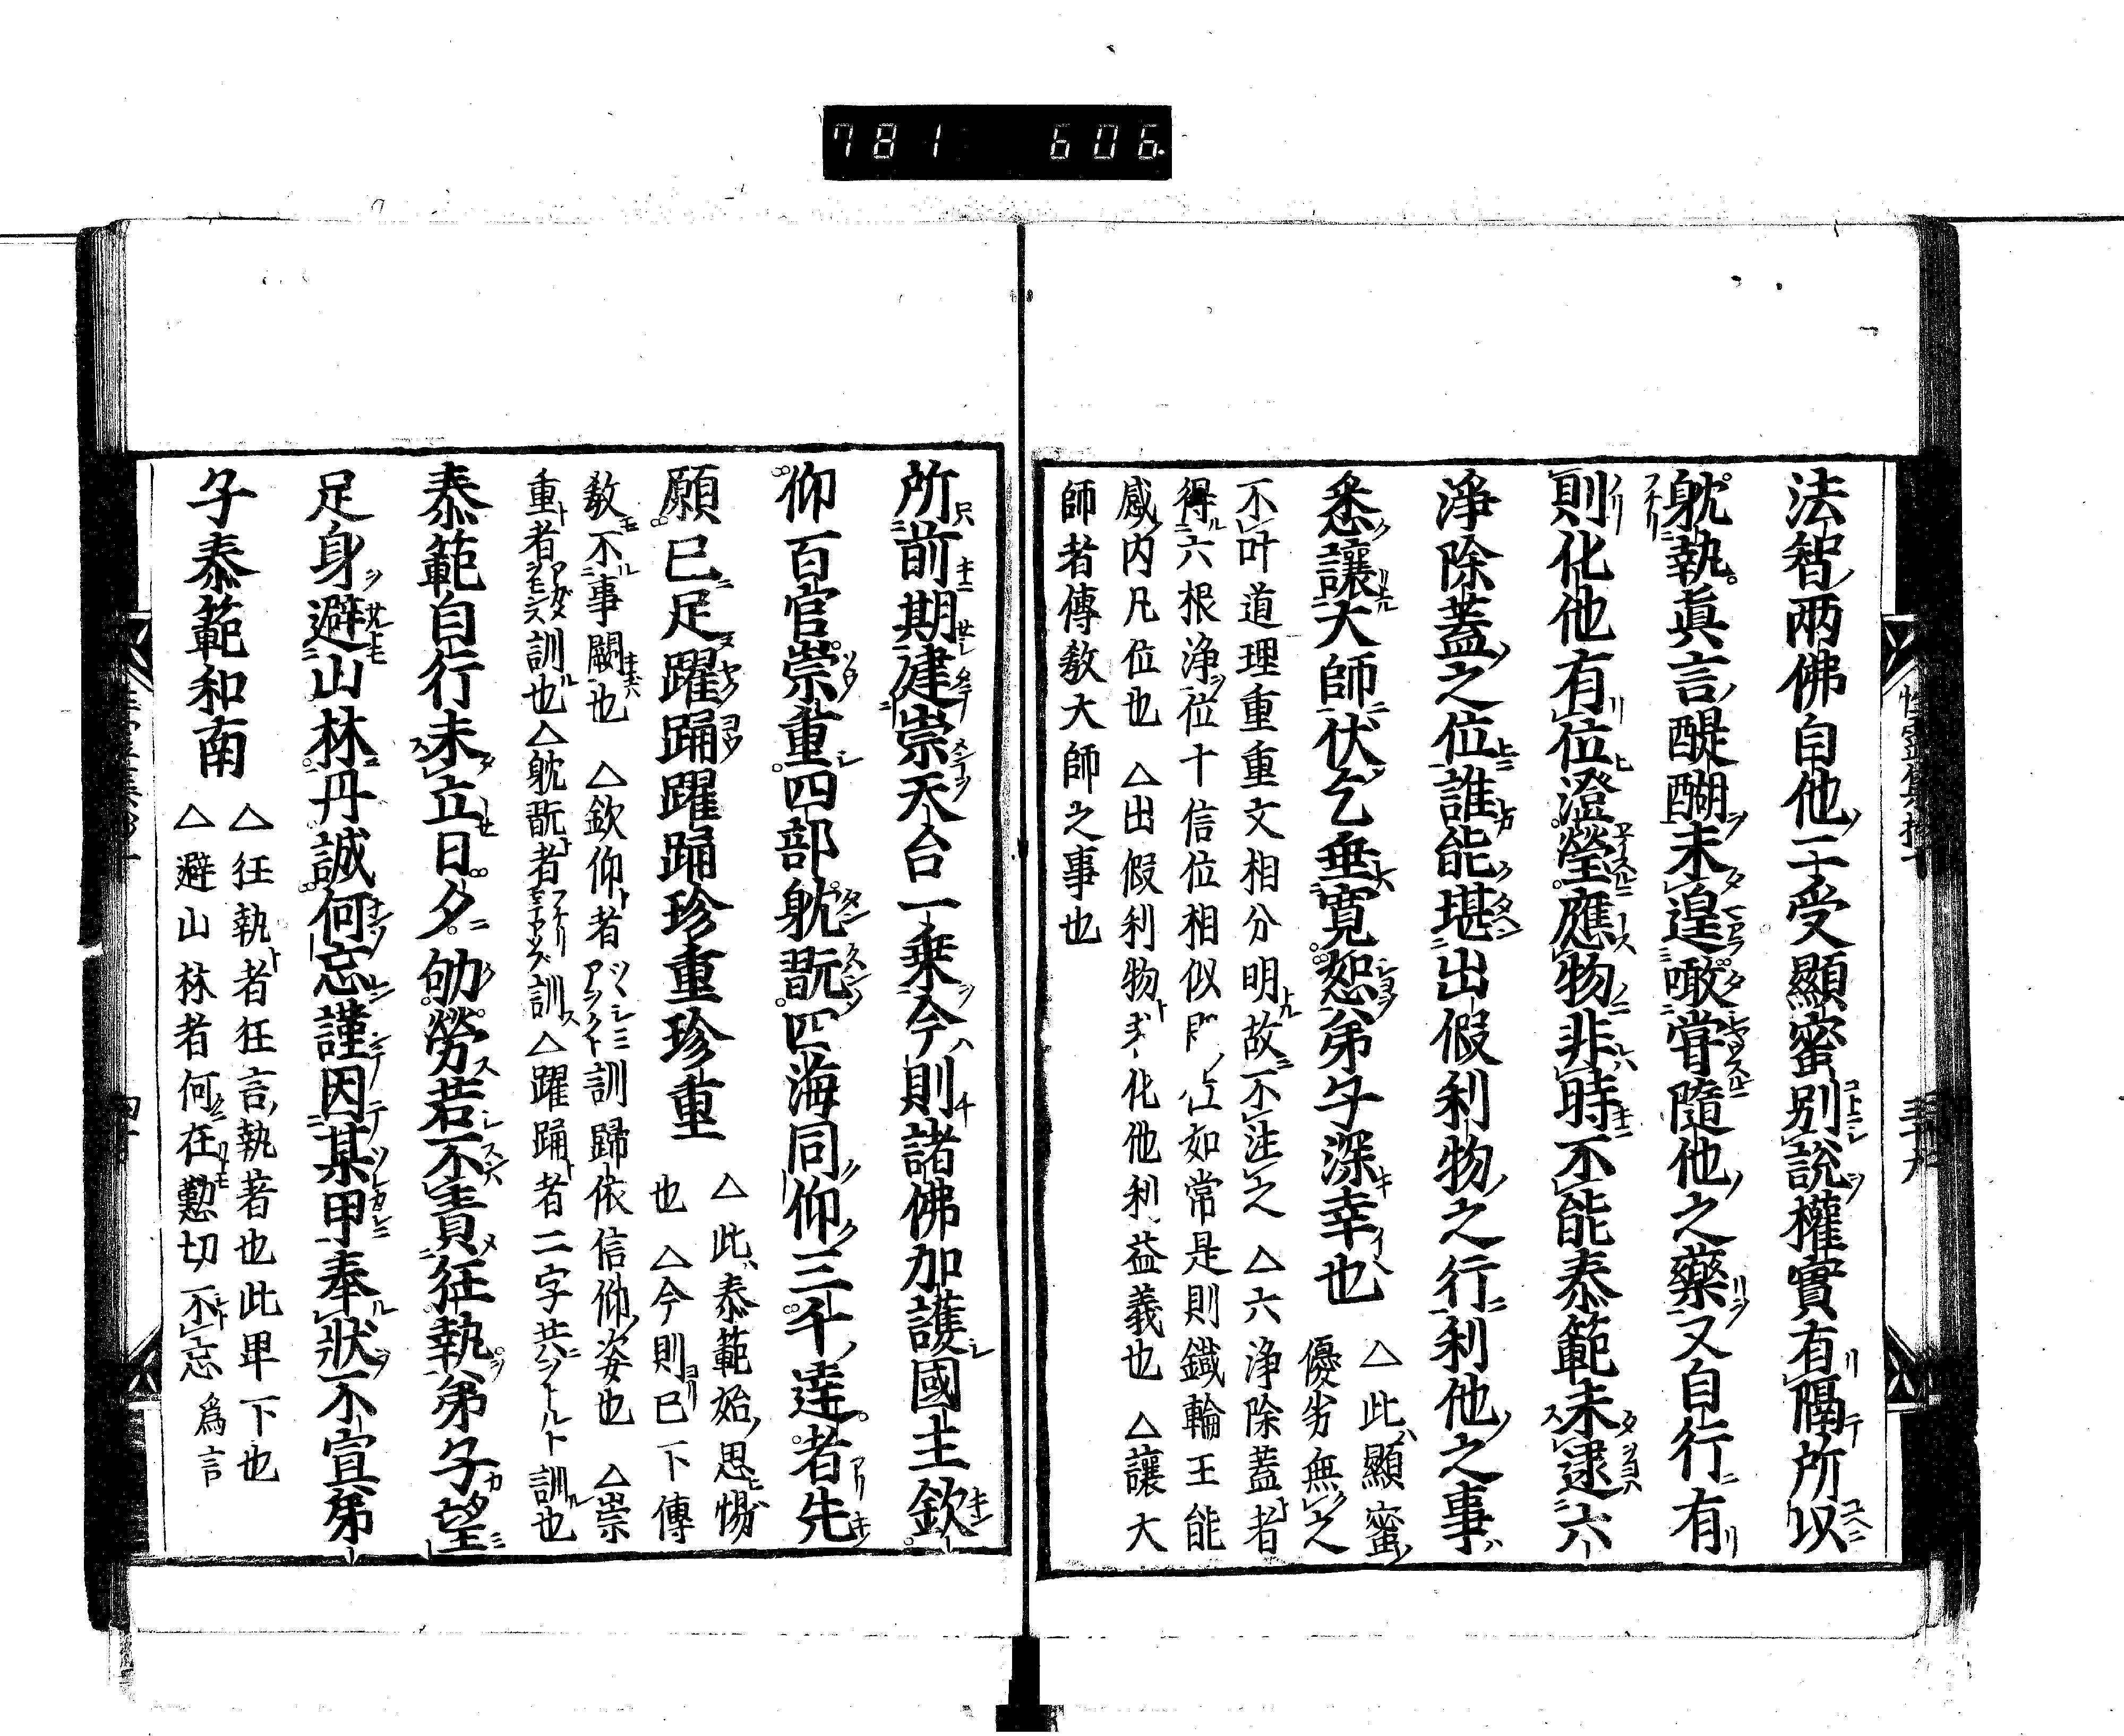 781 606
法智兩佛自他二受顯蜜別說權實有隔所以
躭執眞言醍醐未遑噉甞隨他之藥又自行有
則化他有位澄瑩應物非時不能泰範未逮六
淨除蓋之位誰能堪出假利物之行利他之事
悉讓大師伏乞垂寬恕弟子深幸也
△此顯蜜
優劣無之
不叶道理重重文相分明故不注之 △六淨除蓋者
得六根淨位十信位相似 位如常是則鐵輪王能
感內凡位也 △出假利物 化他利益義也 △讓大
師者傳敎大師之事也
所前期建崇天台一乗今則諸佛加護國主欽
仰百官崇重四部躭翫四海同仰三千達者先
願已足躍踊躍踊珍重珍重
△此泰範始思惕
也 △今則已下傳
敎不事嗣也 △欽仰者アフクト訓歸依信仰姿也 △崇
重者訓也△躭翫者訓△躍踊者二字共ヲトルト訓也
泰範自行未立日夕劬勞若不責狂執弟子望
足身避山林丹誠何忘謹因某甲奉狀不宣弟
子泰範和南
△狂執者狂言執著也此卑下也
△避山林者何在懃切不忘爲言